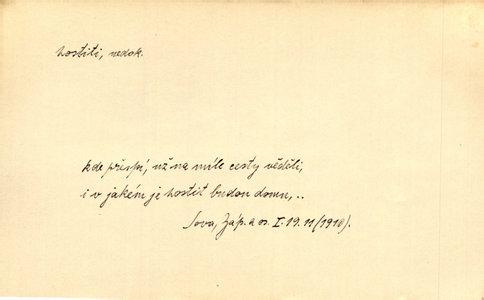 hostiti, nedok.
kde přespí, už na míle cesty věděli,
i v jakém je hostit budou domu, ..
Sova, Záp. a os. I. 19. 11 (1910).